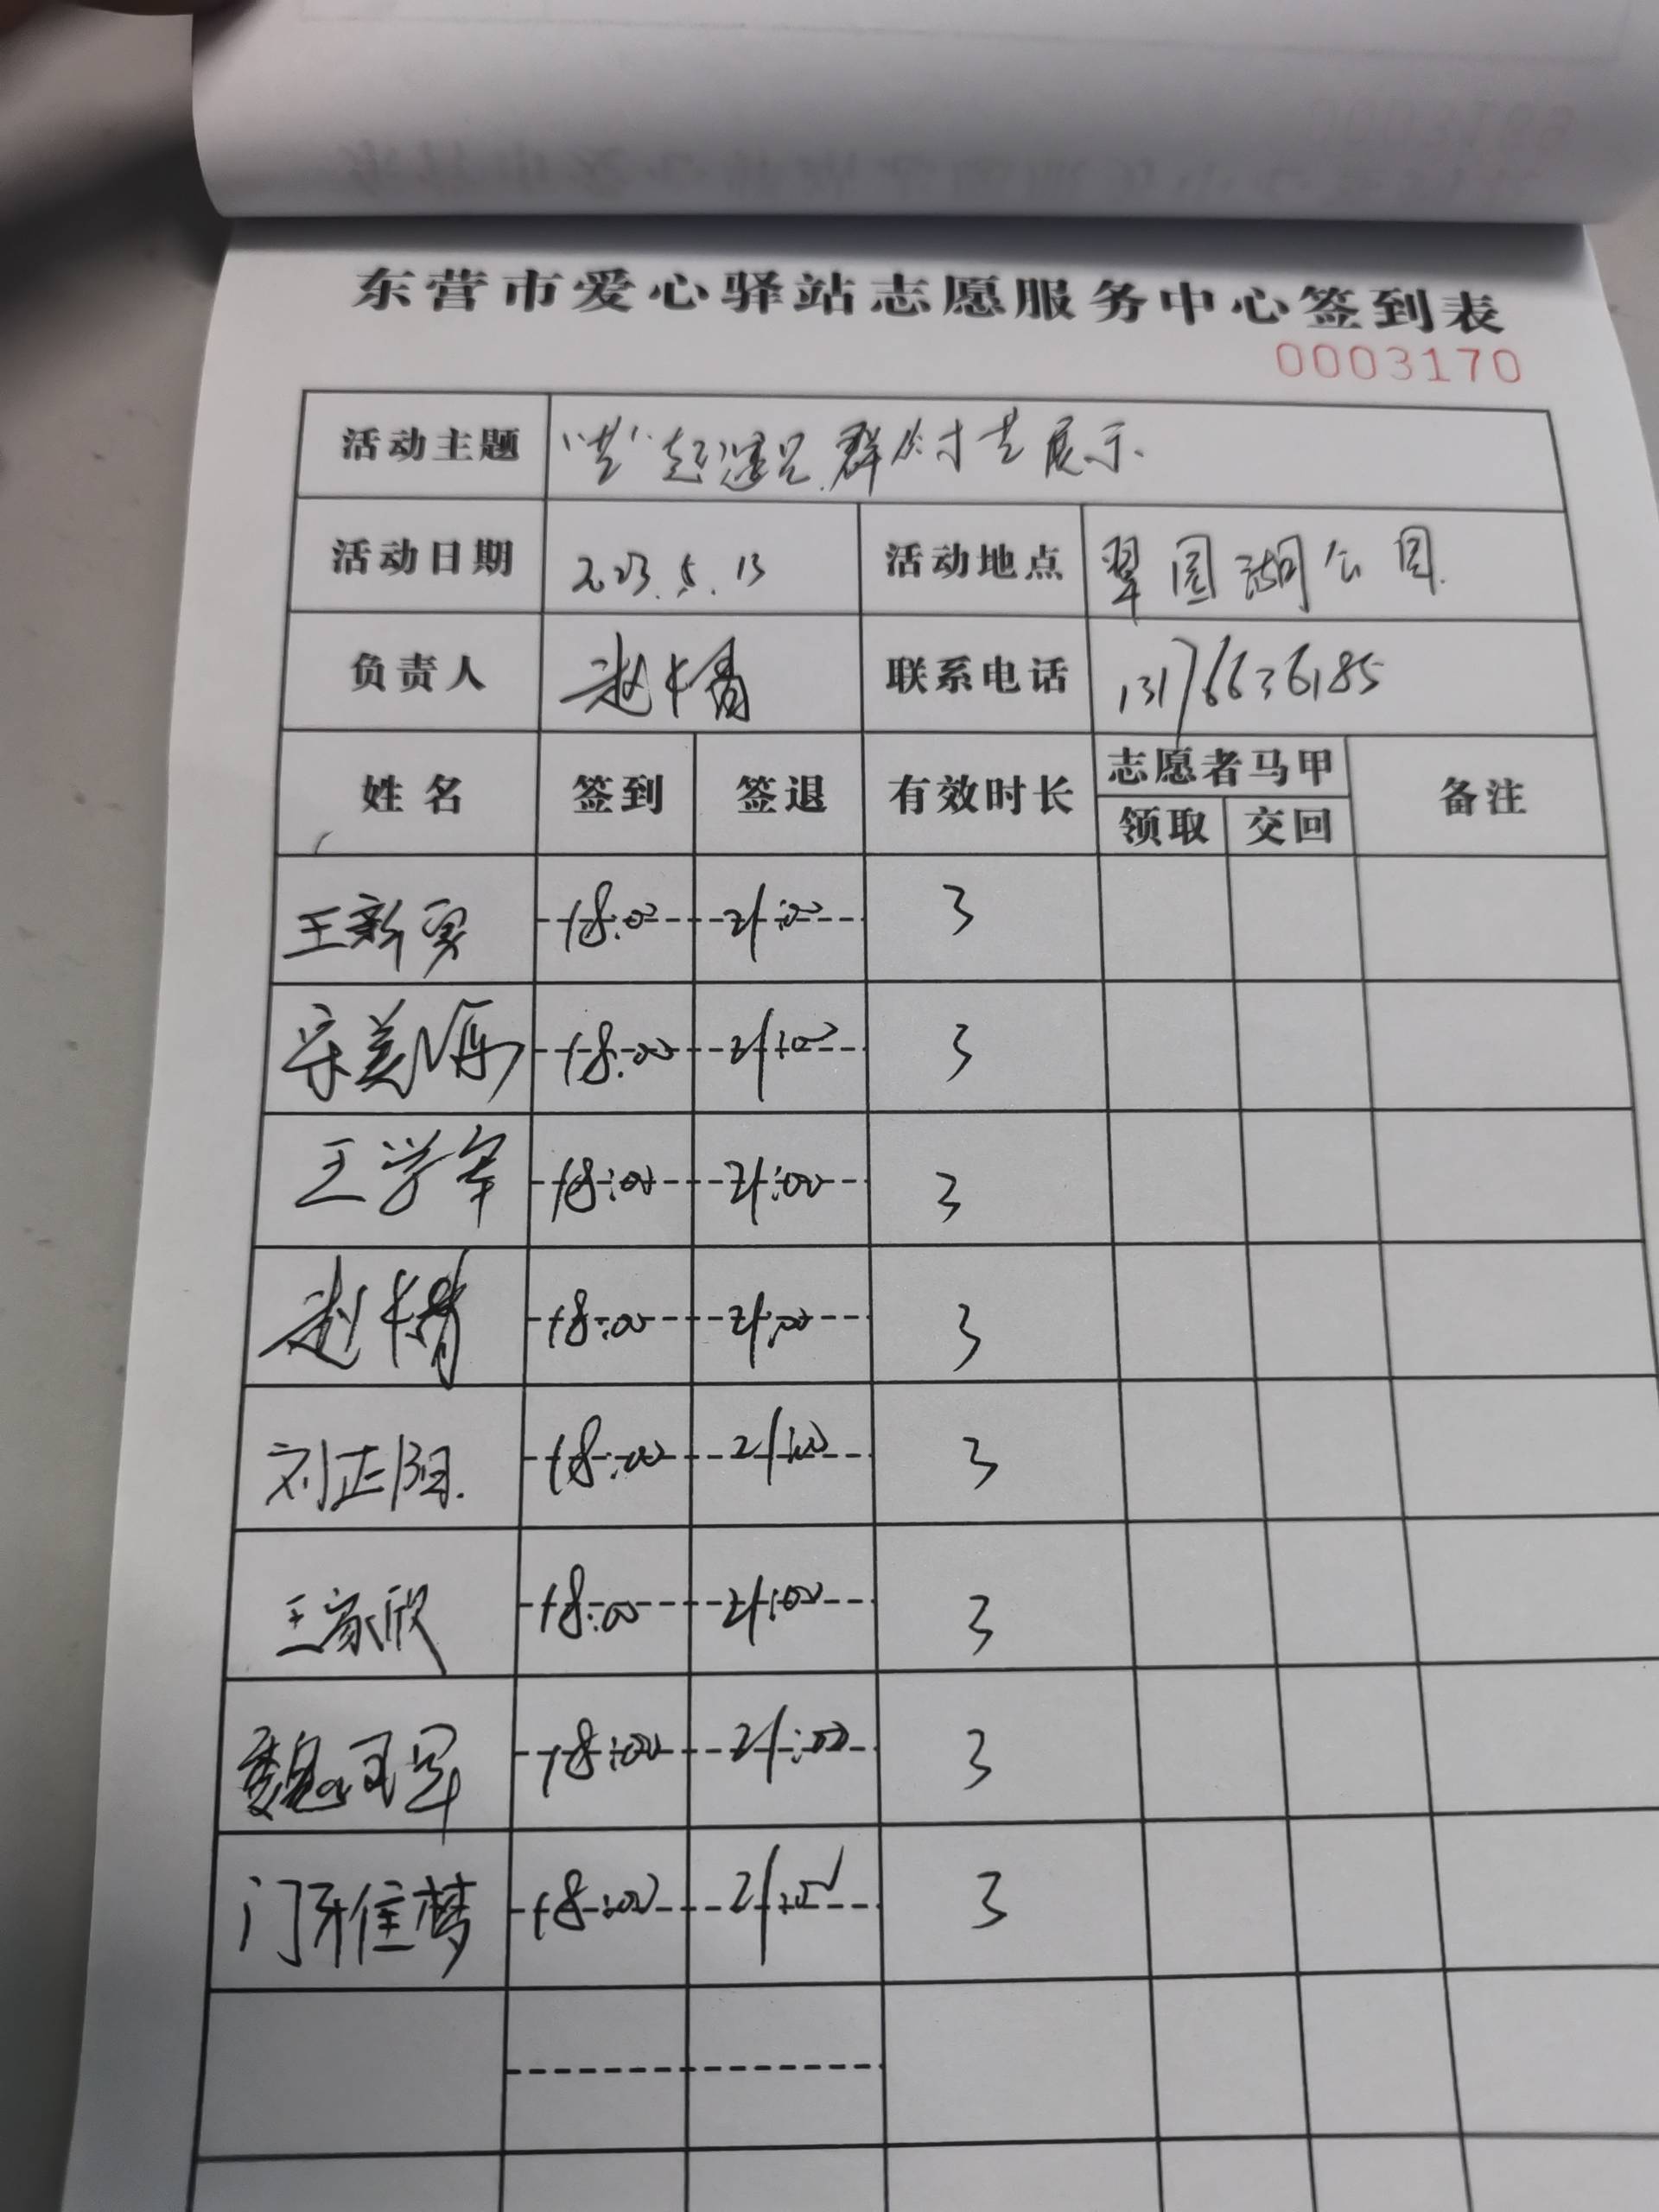 东营市爱心驿站志愿服务中心签到表
0003170
活动主题 "艺"起遇见.群众才艺展示.
活动日期 2023.5.13 活动地点 翠园湖公园.
负责人 赵倩 联系电话 13176636185
姓名 签到 签退 有效时长 志愿者马甲 备注
领取 交回
王新 18:00 21:00 3
宋美 18:00 21:00 3
王学军 18:00 21:00 3
赵倩 18:00 21:00 3
刘正阳. 18:00 21:00 3
王家欣 18:00 21:00 3
魏 18:00 21:00 3
门雅佳梦 18:00 21:00 3